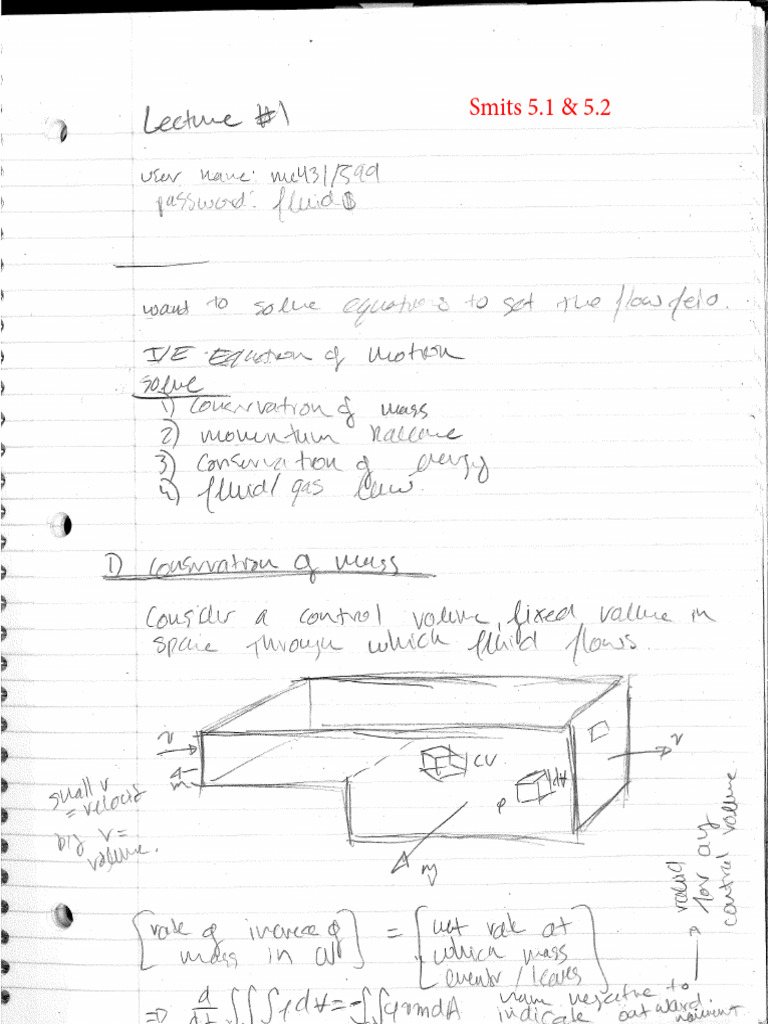 Smits 5.1 & 5.2
Lecture #1
user name: me431/599
password: fluid$
want to solve equations to get the flow feio.
I/E Equation of motion
solve
1) conservation of mass
2) momentum balance
3) conservation of energy
4) fluid/gas law.
1) conservation of mass
Consider a control volume, fixed volume in
space through which fluid flows.
v
v
CV
dV
ρ
small v
= velocity
big V =
volume.
valid
for any
control volume
[rate of increase of
mass in CV] = [net rate at
which mass
enters/leaves]
⇒ d/dt ∫∫∫ρdV = -∫∫ dA
negative to
indicate outward